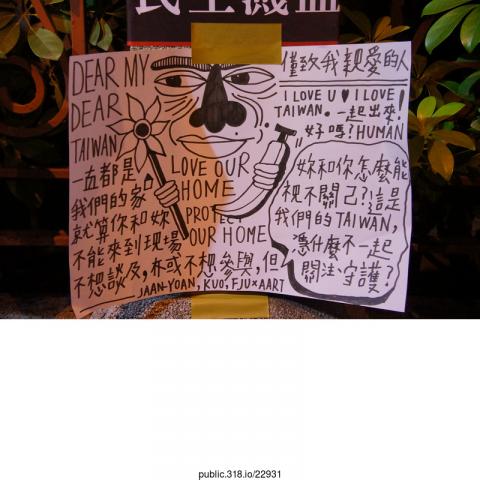 DEAR MY
DEAR
TAIWAN
一直都是
我們的家
就算你和妳
不能來到現場
不想談及,亦或不想參與,但
LOVE OUR
HOME
PROTECT
OUR HOME
JAAN-YOAN, KUO, FJU×AART
僅致我親愛的人
I LOVE U ♥ I LOVE
TAIWAN. 一起出來!
好嗎?HUMAN
妳和你怎麼能
視不關己?!這是
我們的TAIWAN,
憑什麼不一起
關注、守護?
public.318.io/22931